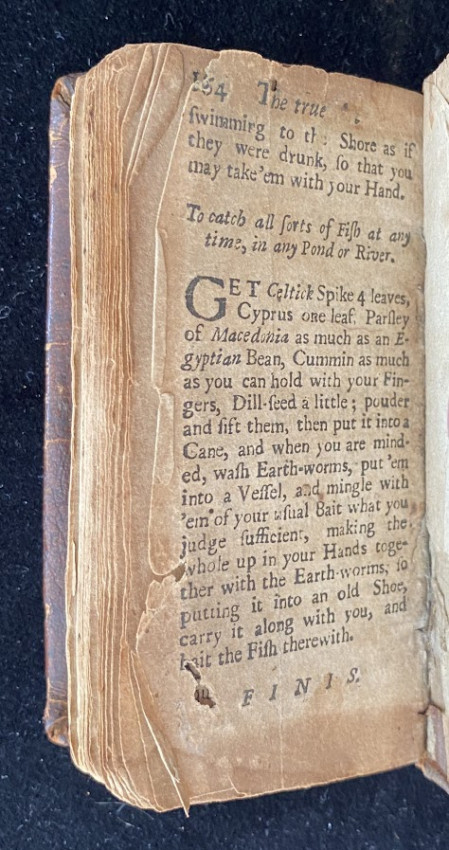 164 The true
ſwimming to the Shore as if
they were drunk, ſo that you
may take'em with your Hand.
To catch all ſorts of Fiſh at any
time, in any Pond or River.
GET Celtick Spike 4 leaves,
Cyprus one leaf, Parſley
of Macedonia as much as an E-
gyptian Bean, Cummin as much
as you can hold with your Fin-
gers, Dill-ſeed a little; pouder
and ſift them, then put it into a
Cane, and when you are mind-
ed, waſh Earth-worms, put 'em
into a Veſſel, and mingle with
'em of your uſual Bait what you
judge ſufficient, making the
whole up in your Hands toge-
ther with the Earth-worms, ſo
putting it into an old Shoe,
carry it along with you, and
bait the Fiſh therewith.
FINIS.